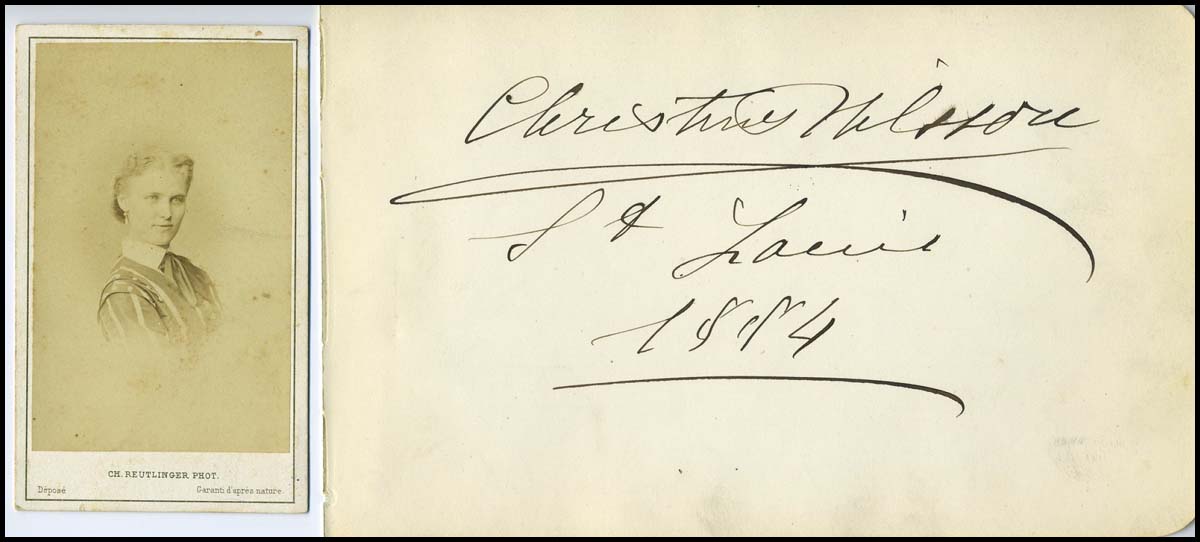 CH. REUTLINGER PHOT.
Déposé Garanti d'après nature.
Christine Nilsson
St Louis
1884